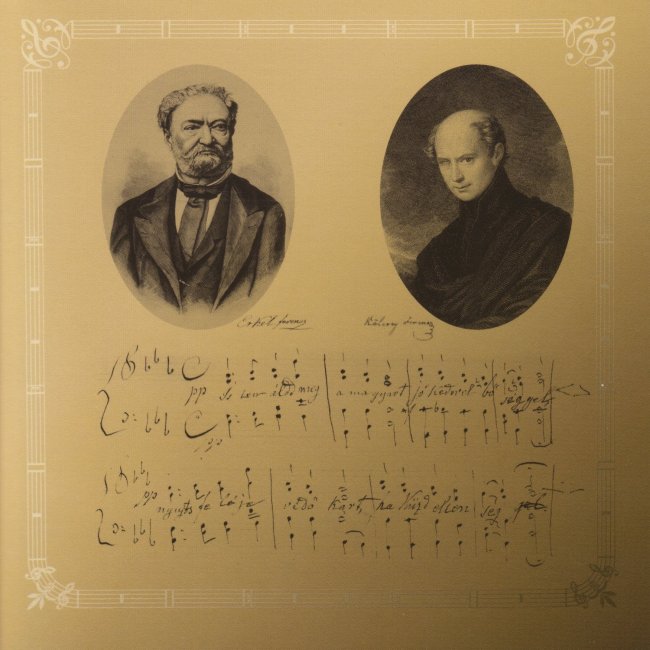 Erkel Ferenc
Kölcsey Ferenc
pp Is ten áldd meg a magyart jó kedvvel bő séggel
pp
pp nyujts fe léje védő kart ha küzd ellen ség